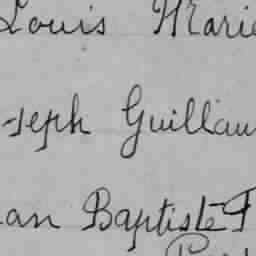 Louis Marie
seph Guillau
an Baptiste